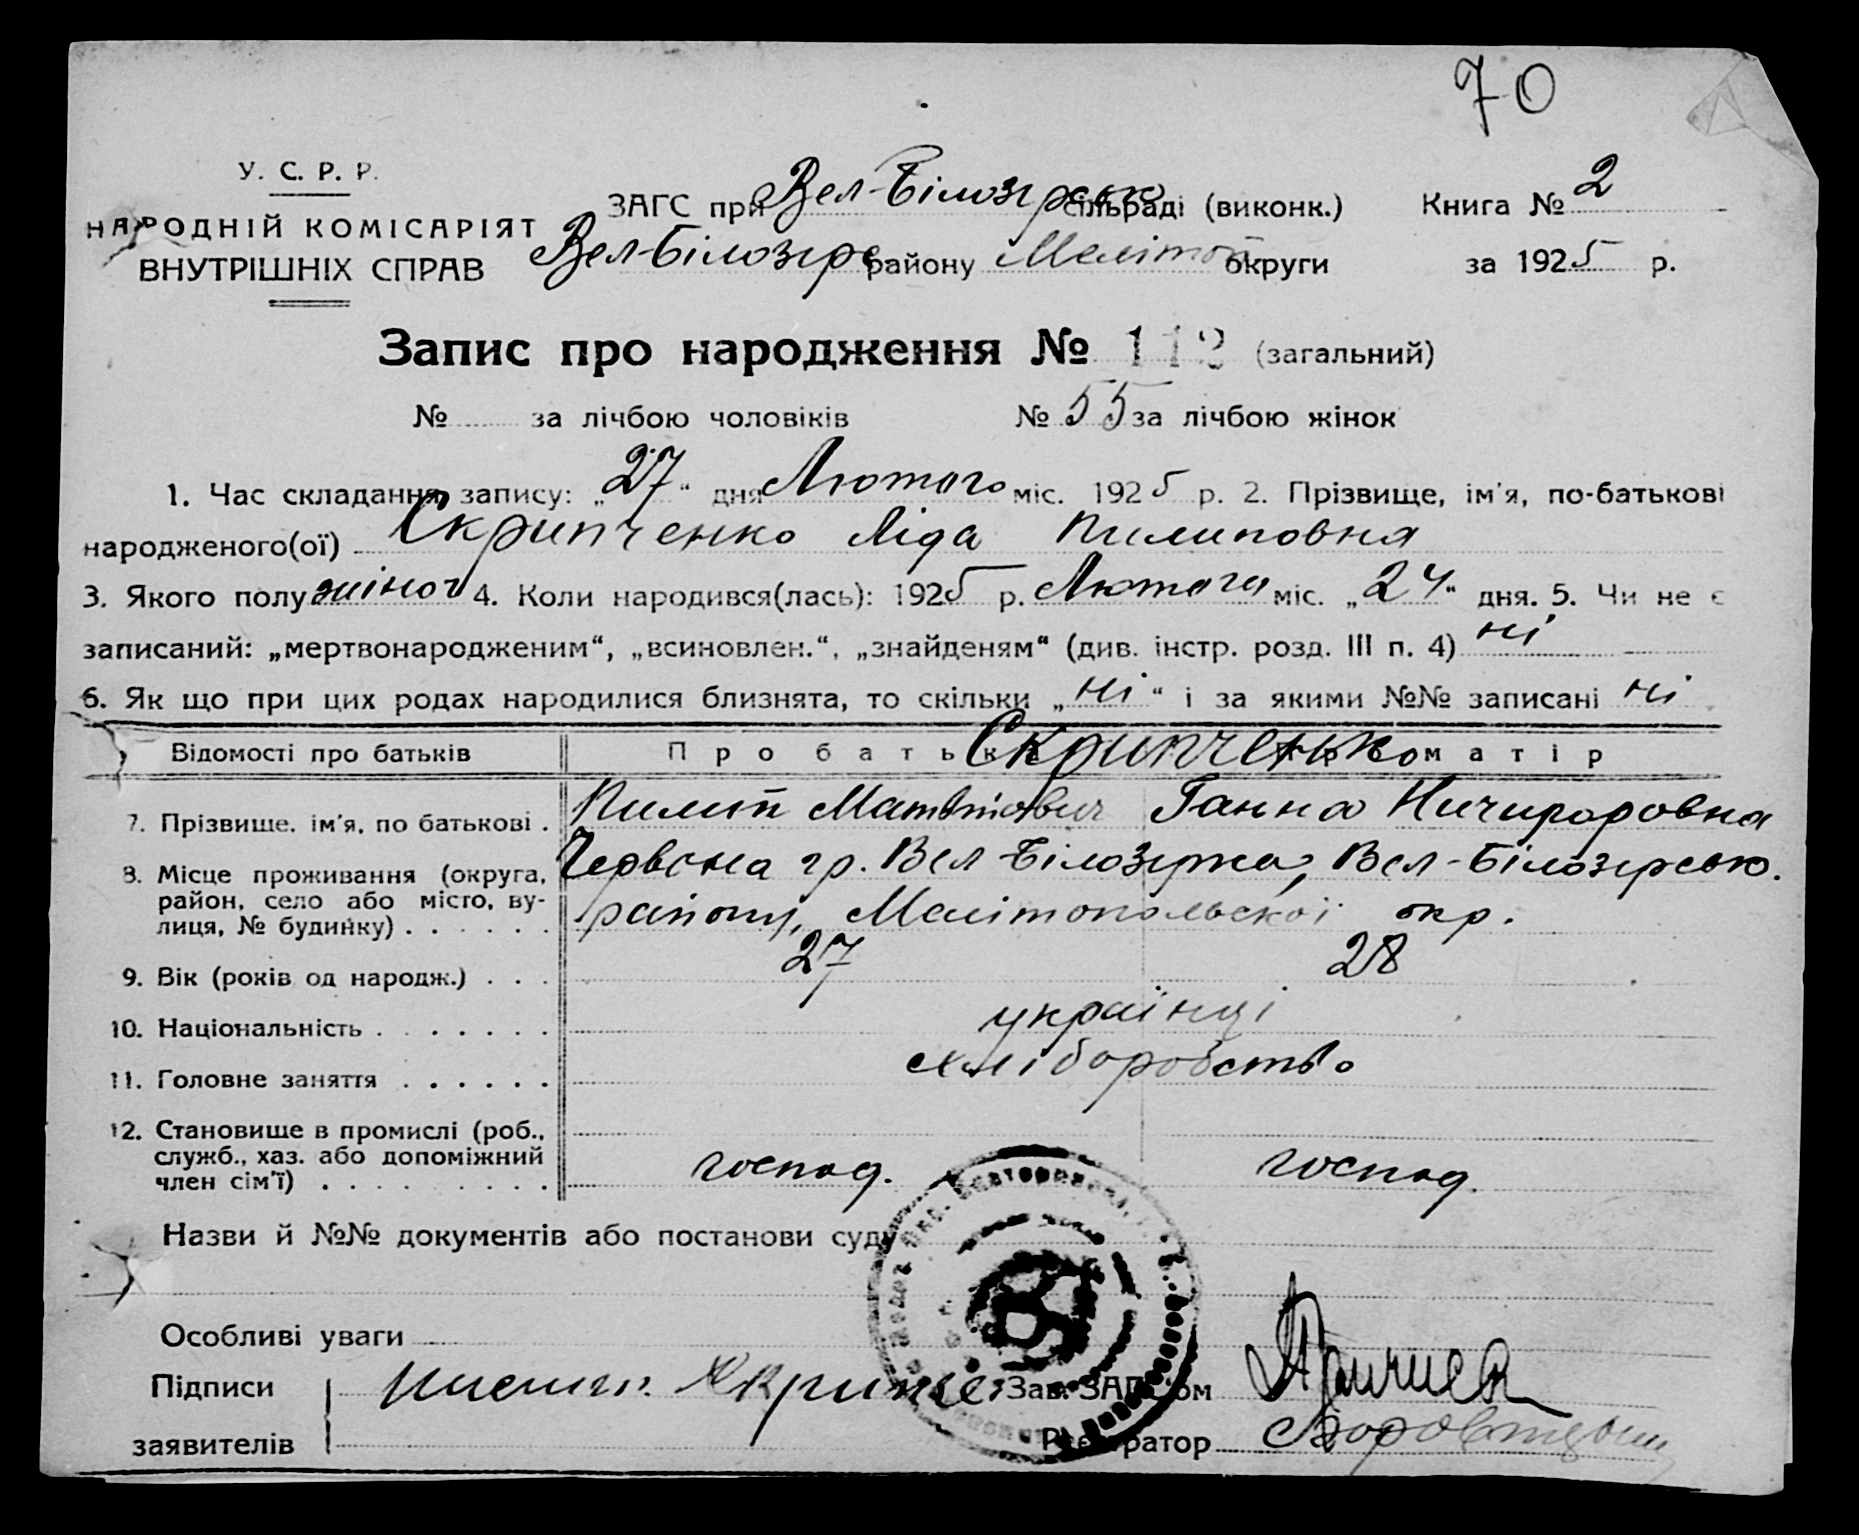 70
У. С. Р. Р.
НАРОДНІЙ КОМІСАРІЯТ
ВНУТРІШНІХ СПРАВ
ЗАГС при Вел-Білозерською сільраді (виконк.) Книга № 2
Вел-Білозерс району Меліто округи за 1925 р.
Запис про народження № 112 (загальний)
№ за лічбою чоловіків № 55 за лічбою жінок
1. Час складання запису: „27“ дня Лютого міс. 1925 р. 2. Прізвище, ім'я, по-батькові
народженого(ої) Скрипченко Ліда Пилиповня
3. Якого полу жіноч 4. Коли народився(лась): 1925 р. Лютого міс. „24“ дня. 5. Чи не є
записаний: „мертвонародженим“, „всиновлен.“, „знайденям“ (див. інстр. розд. III п. 4) ні
6. Як що при цих родах народилися близнята, то скільки „ні“ і за якими №№ записані ні
Відомості про батьків Про батька Скрипченко матір
7. Прізвище, ім'я, по батькові . Пилип Ганна Ничипоровна
8. Місце проживання (округа, Червона гр. Вел Білозерка, Вел-Білозерською.
район, село або місто, ву- району, Мелітопольскої окр.
лиця, № будинку) . . . . . .
9. Вік (років од народж.) . . . 27 28
10. Національність . . . . . . . українці
11. Головне заняття . . . . . . хліборобство
12. Становище в промислі (роб.,
служб., хаз. або допоміжний господ. господ.
член сім'ї) . . . . . . . . .
Назви й №№ документів або постанови суду
Особливі уваги
Підписи Скрипче Зав. ЗАГС'ом
заявителів Реєстратор